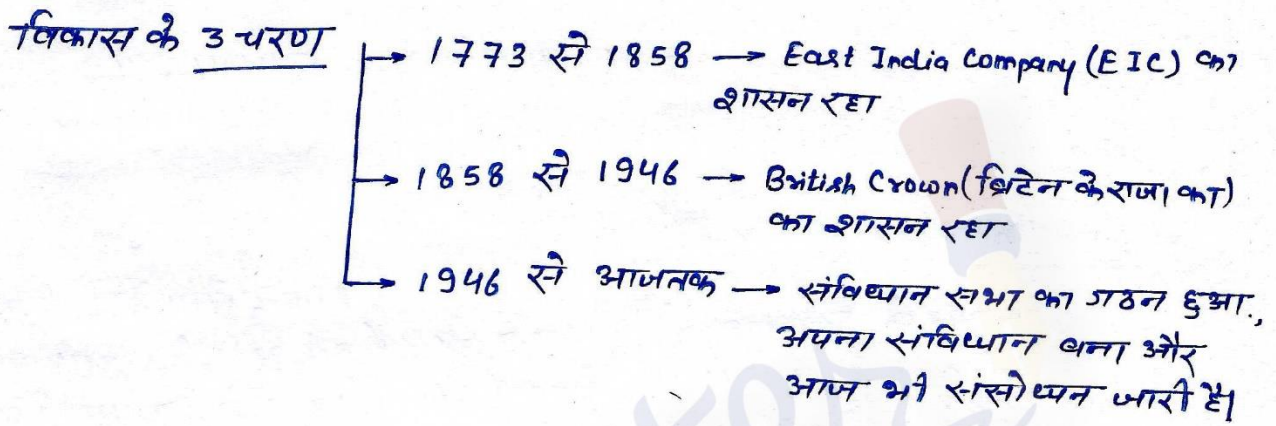 विकास के 3 चरण
→ 1773 से 1858 → East India Company (EIC) का
शासन रहा
→ 1858 से 1946 → British Crown (ब्रिटेन के राजा का)
का शासन रहा
→ 1946 से आजतक → संविधान सभा का गठन हुआ.,
अपना संविधान बना और
आज भी संसोधन जारी है।